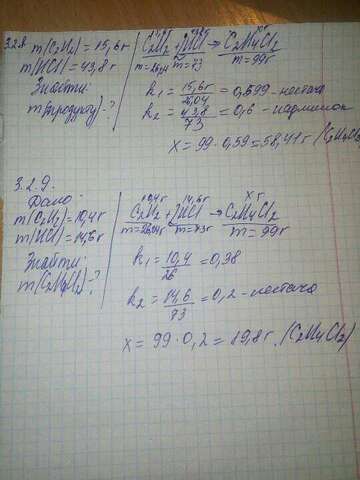 3.2.8. m(C₂H₂)=15,6г
m(HCl)=43,8г
Знайти
m(продукту)-?
C₂H₂ + 2HCl → C₂H₄Cl₂
m=26,04 m=73 m=99г
k₁ = 15,6г/26,04 = 0,599 - нестача
k₂ = 43,8/73 = 0,6 - надлишок
x = 99 · 0,59 = 58,41г (C₂H₄Cl₂)
3.2.9.
Дано:
m(C₂H₂)=10,4г
m(HCl)=14,6г
Знайти:
m(C₂H₄Cl₂)-?
10,4г 14,6г xг
C₂H₂ + 2HCl → C₂H₄Cl₂
m=26,04г m=73г m=99г
k₁ = 10,4/26 = 0,38
k₂ = 14,6/73 = 0,2 - нестача
x = 99 · 0,2 = 19,8г. (C₂H₄Cl₂)